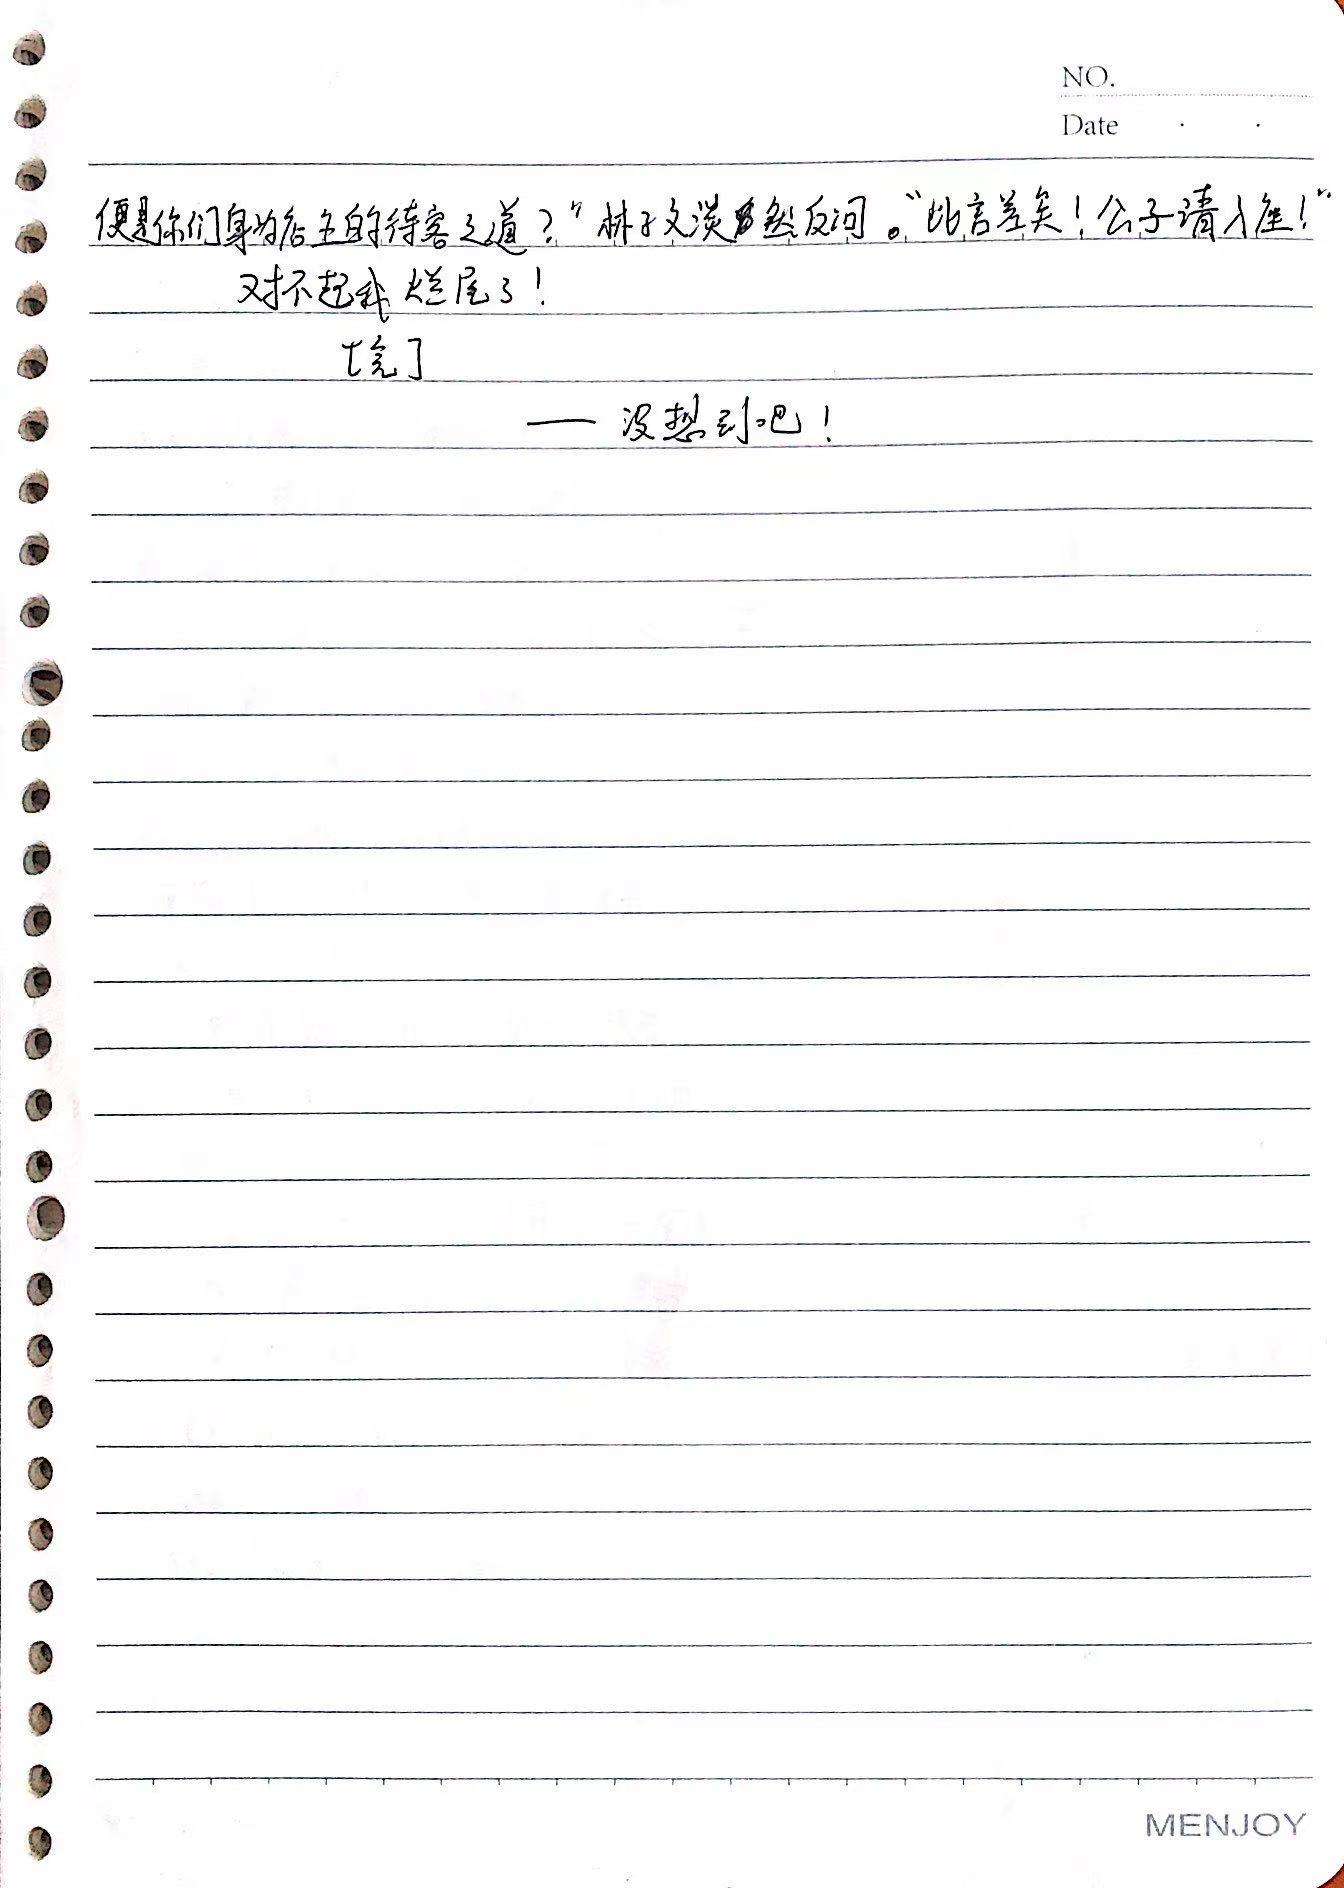 NO.
Date · ·
便是你们身为店主的待客之道？"林子文淡然反问。"此言差矣！公子请入座！"
对不起我烂尾了！
坑了
——没想到吧！
MENJOY